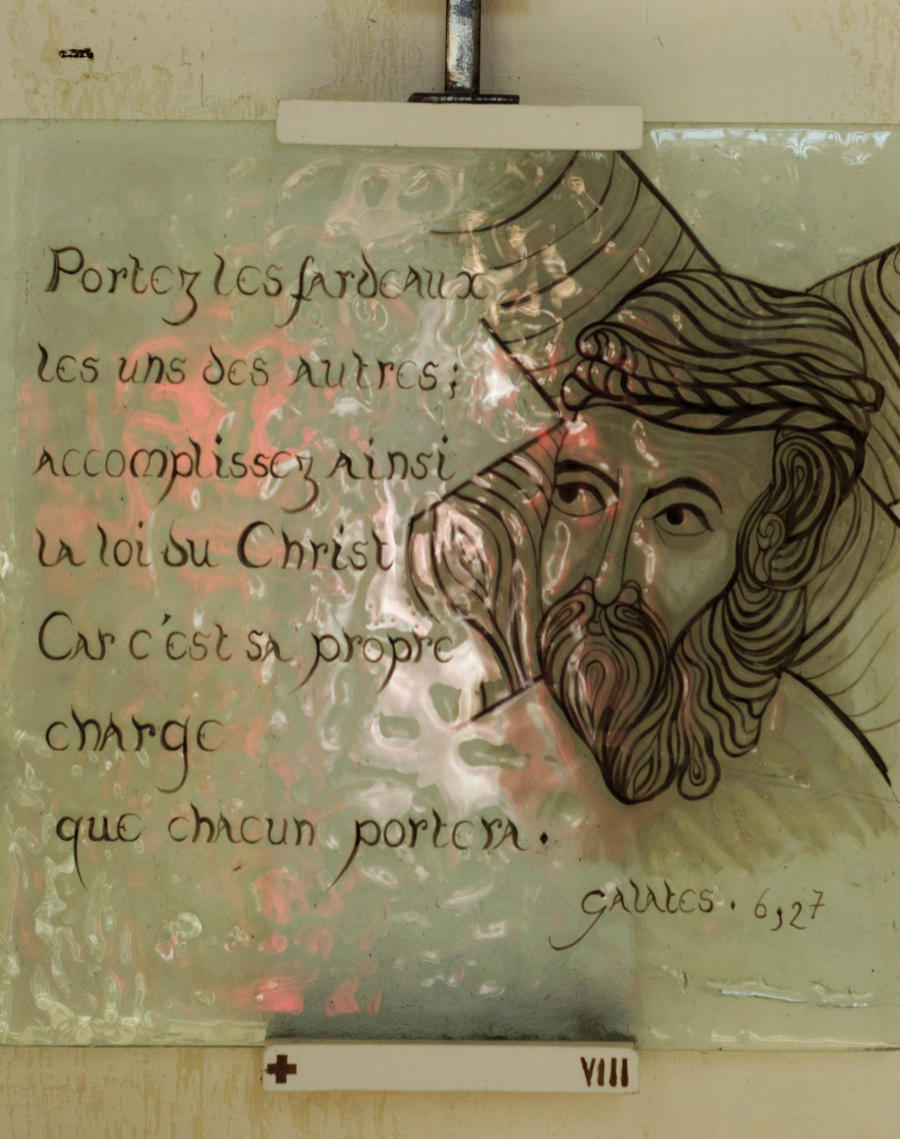 Portez les fardeaux
les uns des autres;
accomplissez ainsi
la loi du Christ
Car c'est sa propre
charge
que chacun portera.
Galates. 6,27
✚ VIII